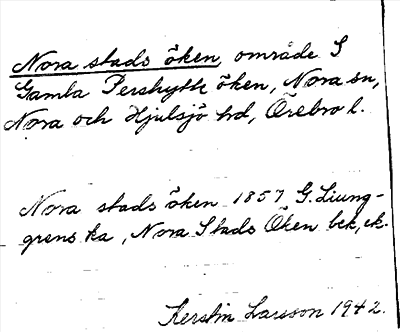 Nora stads öken, område S
Gamla Pershytte öken, Nora sn,
Nora och Hjulsjö hd, Örebro l.
Nora stads öken 1857 G. Ljung-
grens ka, Nora Stads Öken bek, ek.
Kerstin Larsson 1942.